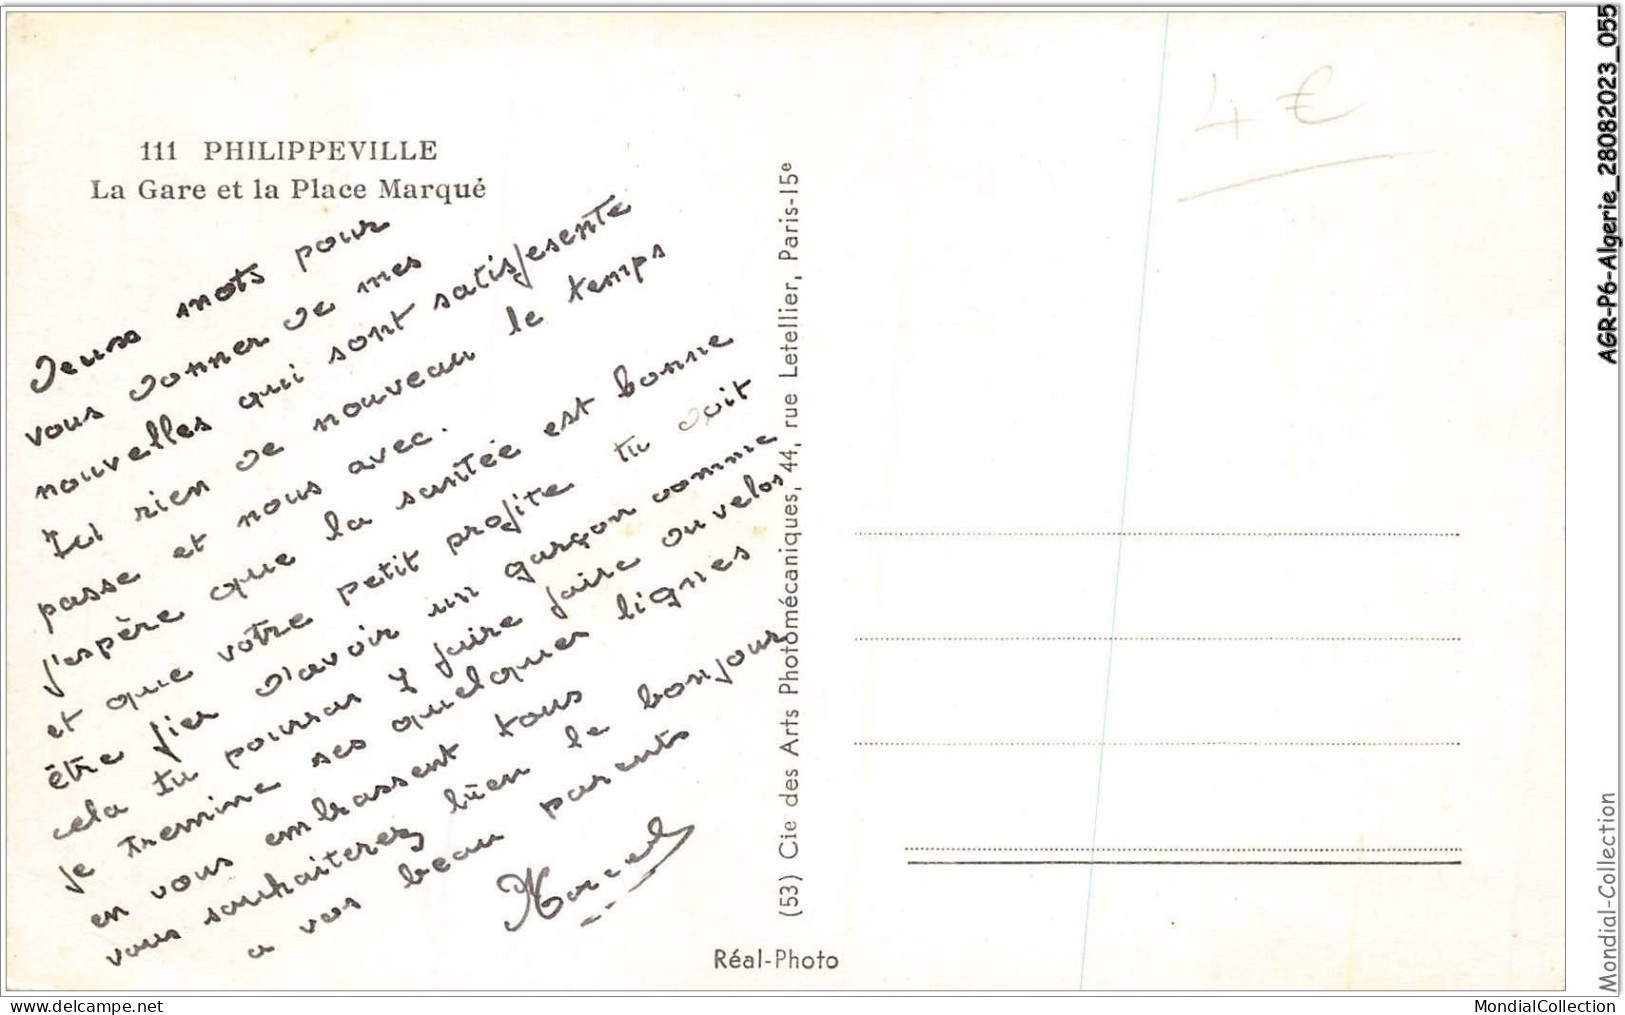 111 PHILIPPEVILLE
La Gare et la Place Marqué
Deuxs mots pour
vous donner de mes
nouvelles qui sont satisfesente
Ici rien de nouveau le temps
passe et nous avec.
j'espère que la santée est bonne
et que votre petit profite tu doit
être fier d'avoir un garçon comme
cela tu pourras y faire faire ou velos
je tremine ses quelques lignes
en vous embrassent tous
vous souhaiterez bien le bonjour
a vos beau parents
Marcel
(53) Cie des Arts Photomécaniques, 44, rue Letellier, Paris-15e
Réal-Photo
4 €
AGR-P6-Algerie_28082023_055
Mondial-Collection
www.delcampe.net
MondialCollection